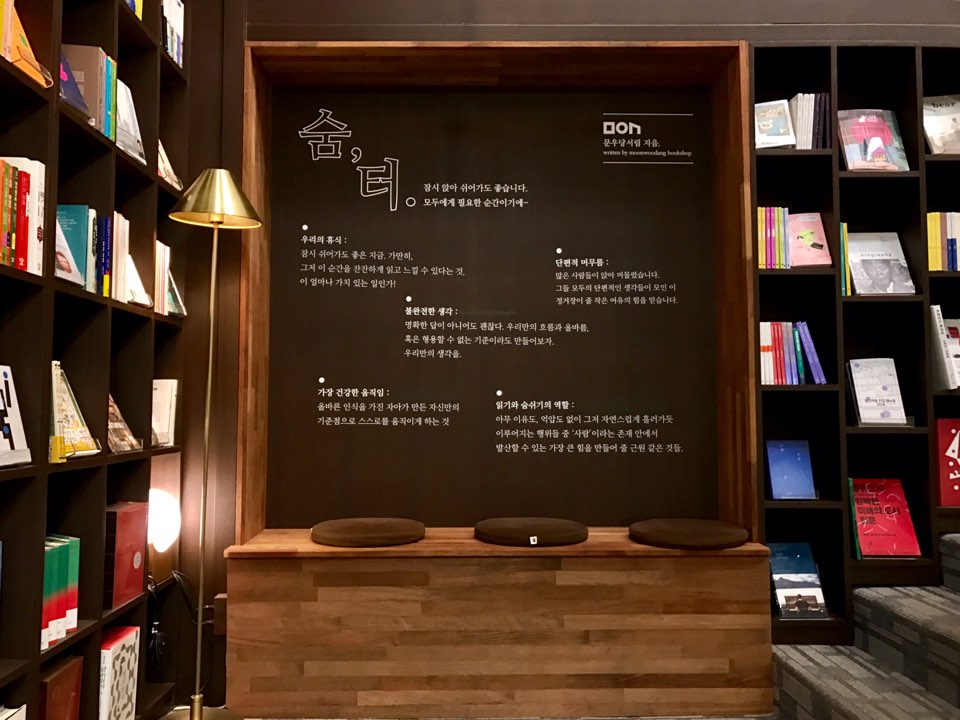 숨,
터.
문우당서림 지음.
written by moonwoodang bookshop
잠시 앉아 쉬어가도 좋습니다.
모두에게 필요한 순간이기에–
우리의 휴식 :
잠시 쉬어가도 좋은 지금. 가만히,
그저 이 순간을 잔잔하게 읽고 느낄 수 있다는 것,
이 얼마나 가치 있는 일인가!
단편적 머무름 :
많은 사람들이 앉아 머물렀습니다.
그들 모두의 단편적인 생각들이 모인 이
정거장이 줄 작은 여유의 힘을 믿습니다.
불완전한 생각 :
명확한 답이 아니어도 괜찮다. 우리만의 흐름과 올바름,
혹은 형용할 수 없는 기준이라도 만들어보자.
우리만의 생각을.
가장 건강한 움직임 :
올바른 인식을 가진 자아가 만든 자신만의
기준점으로 스스로를 움직이게 하는 것
읽기와 숨쉬기의 역할 :
아무 이유도, 억압도 없이 그저 자연스럽게 흘러가듯
이루어지는 행위들 중 '사람'이라는 존재 안에서
발산할 수 있는 가장 큰 힘을 만들어 줄 근원 같은 것들.
biography
미래의 도시